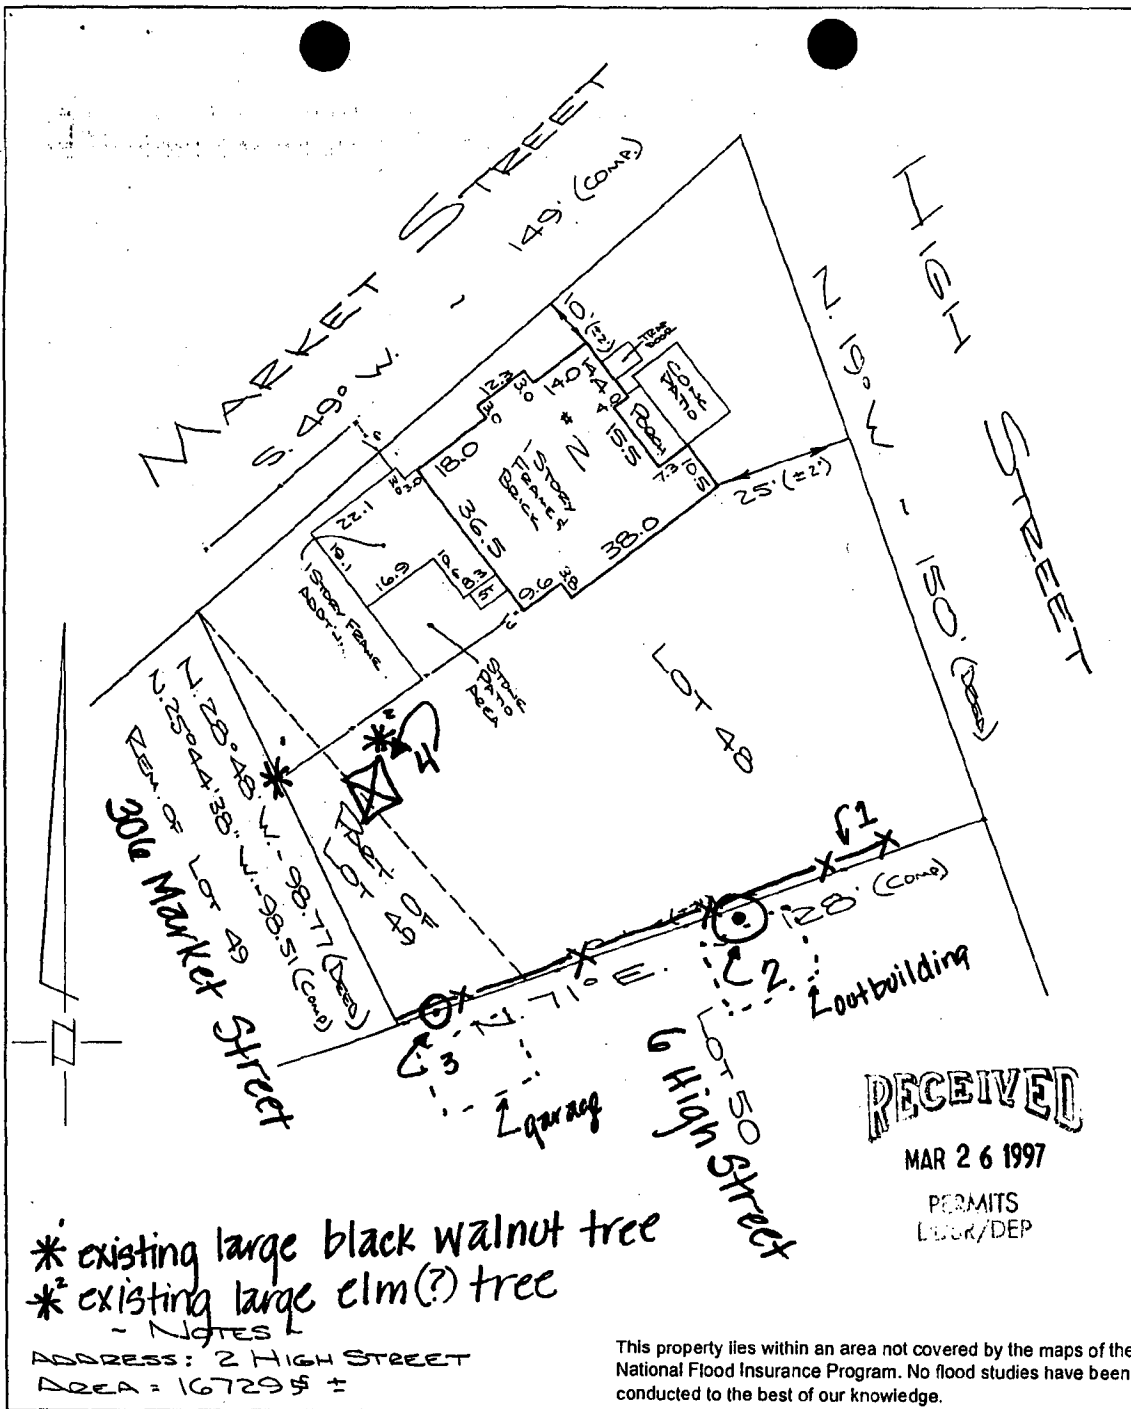 MARKET STREET
S. 49° W. - 149' (COMP.)
HIGH STREET
N. 19° W - 150' (DEED)
10' (±2')
TRAP DOOR
CONC PATIO
PORCH
12.3
3.0
3.0
14.0
14.0
4
15.5
7.3
10.5
25' (±2')
18.0
36.5
# 2
STORY
FRAME &
BRICK
38.0
3.0
9.6
3.0
22.1
18.1
16.9
10.6
8.3
ST
1 STORY FRAME
ADDT'N.
STONE
PATIO
AREA
LOT 48
N. 28° 48' W. - 98.77 (DEED)
N. 25° 44' 38" W. - 98.51 (COMP)
REM. OF LOT 49
306 Market Street
PART OF
LOT 49
2
4
1
N. 71° E. 128' (COMP)
2
outbuilding
3
garage
LOT 50
6 High Street
RECEIVED
MAR 26 1997
PERMITS
/DEP
*1 existing large black walnut tree
*2 existing large elm(?) tree
- NOTES -
ADDRESS: 2 HIGH STREET
AREA = 16729 SF ±
This property lies within an area not covered by the maps of the
National Flood Insurance Program. No flood studies have been
conducted to the best of our knowledge.